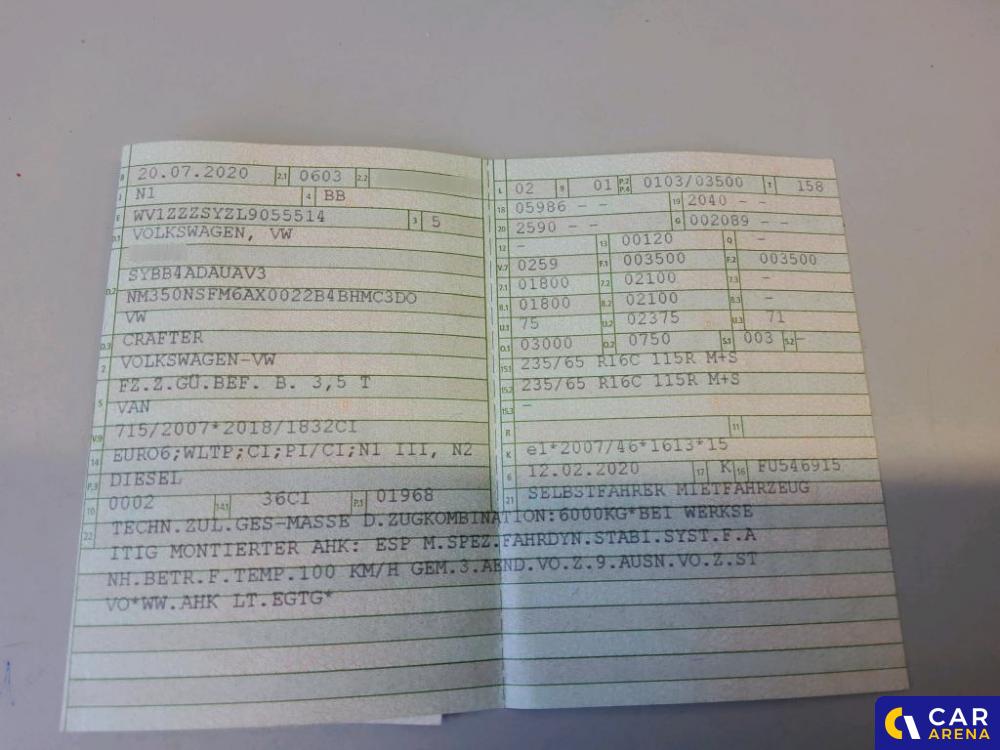 B 20.07.2020 2.1 0603 2.2
J N1 4 BB
E WV1ZZZSYZL9055514 3 5
D.1 VOLKSWAGEN, VW
D.2 SYBB4ADAUAV3
NM350NSFM6AX0022B4BHMC3DO
VW
D.3 CRAFTER
2 VOLKSWAGEN-VW
5 FZ.Z.GÜ.BEF. B. 3,5 T
VAN
V.9 715/2007*2018/1832CI
14 EURO6;WLTP;CI;PI/CI;N1 III, N2
P.3 DIESEL
10 0002 14.1 36CI P.1 01968
L 02 9 01 P.2 P.4 0103/03500 T 158
18 05986 - - 19 2040 - -
20 2590 - - G 002089 - -
12 - 13 00120 Q -
V.7 0259 F.1 003500 F.2 003500
7.1 01800 7.2 02100 7.3 -
8.1 01800 8.2 02100 8.3 -
U.1 75 U.2 02375 U.3 71
O.1 03000 O.2 0750 S.1 003 S.2 -
15.1 235/65 R16C 115R M+S
15.2 235/65 R16C 115R M+S
15.3 -
R 11
K e1*2007/46*1613*15
6 12.02.2020 17 K 16 FU546915
21 SELBSTFAHRER MIETFAHRZEUG
22 TECHN.ZUL.GES-MASSE D.ZUGKOMBINATION:6000KG*BEI WERKSE
ITIG MONTIERTER AHK: ESP M.SPEZ.FAHRDYN.STABI.SYST.F.A
NH.BETR.F.TEMP.100 KM/H GEM.3.AEND.VO.Z.9.AUSN.VO.Z.ST
VO*WW.AHK LT.EGTG*
CAR
ARENA